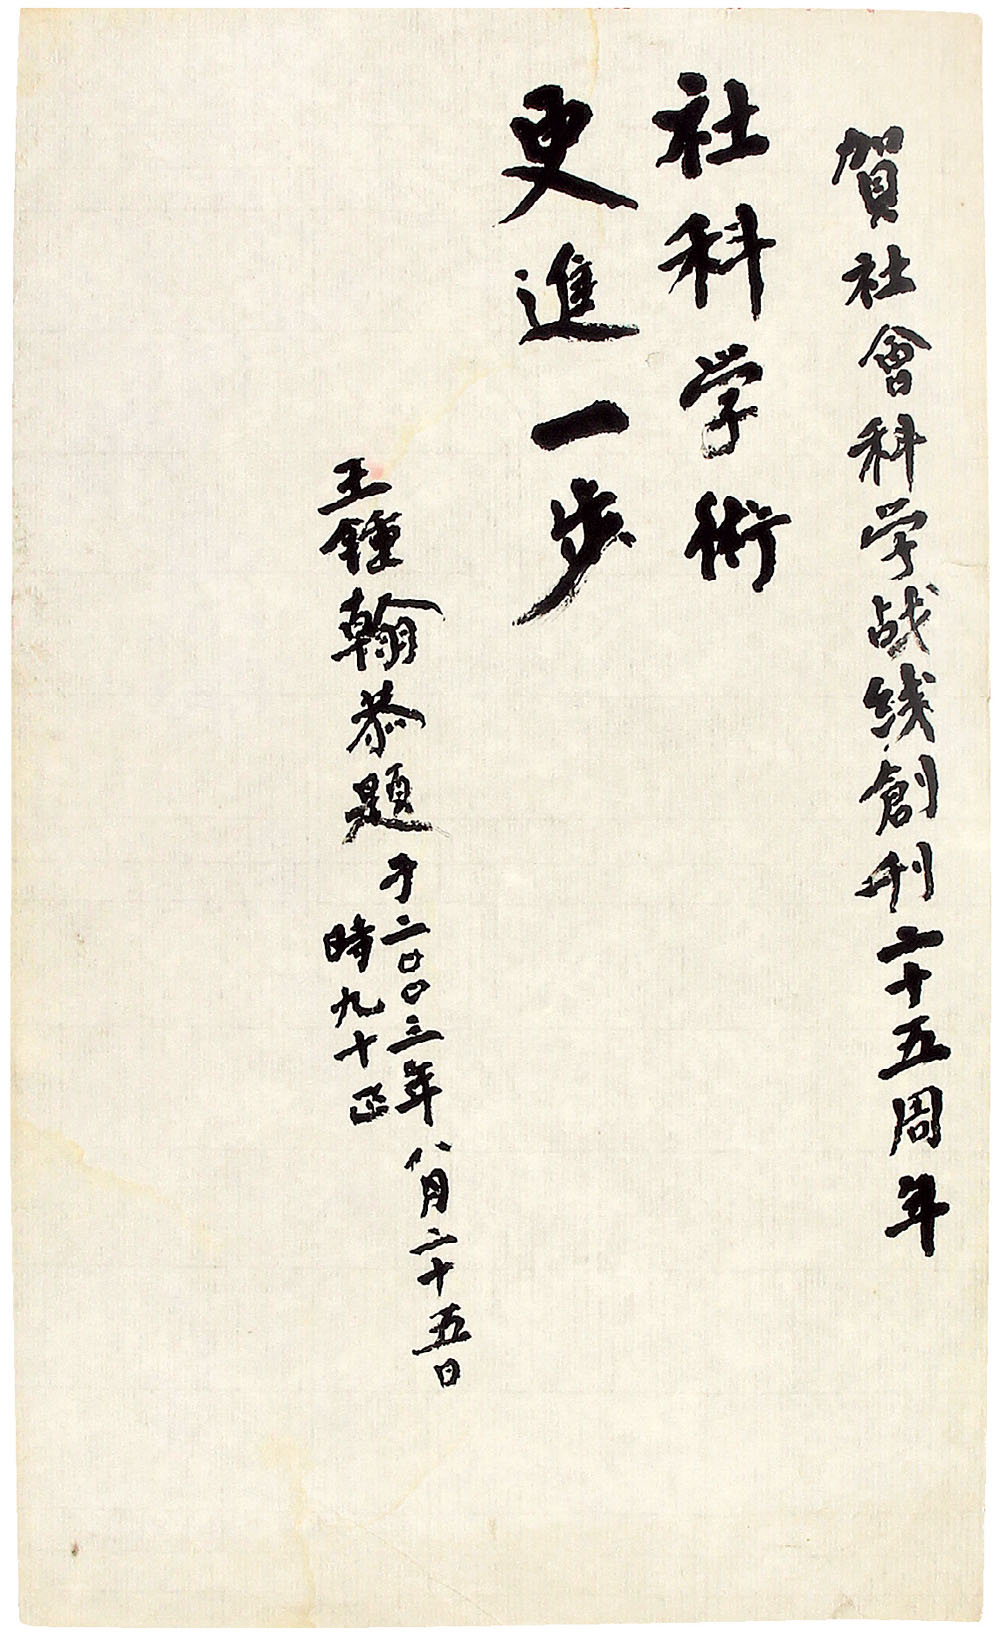 賀社會科学战线創刊二十五周年
社科学術
更進一步
王鍾翰恭題
于二〇〇三年八月二十五日
時九十正